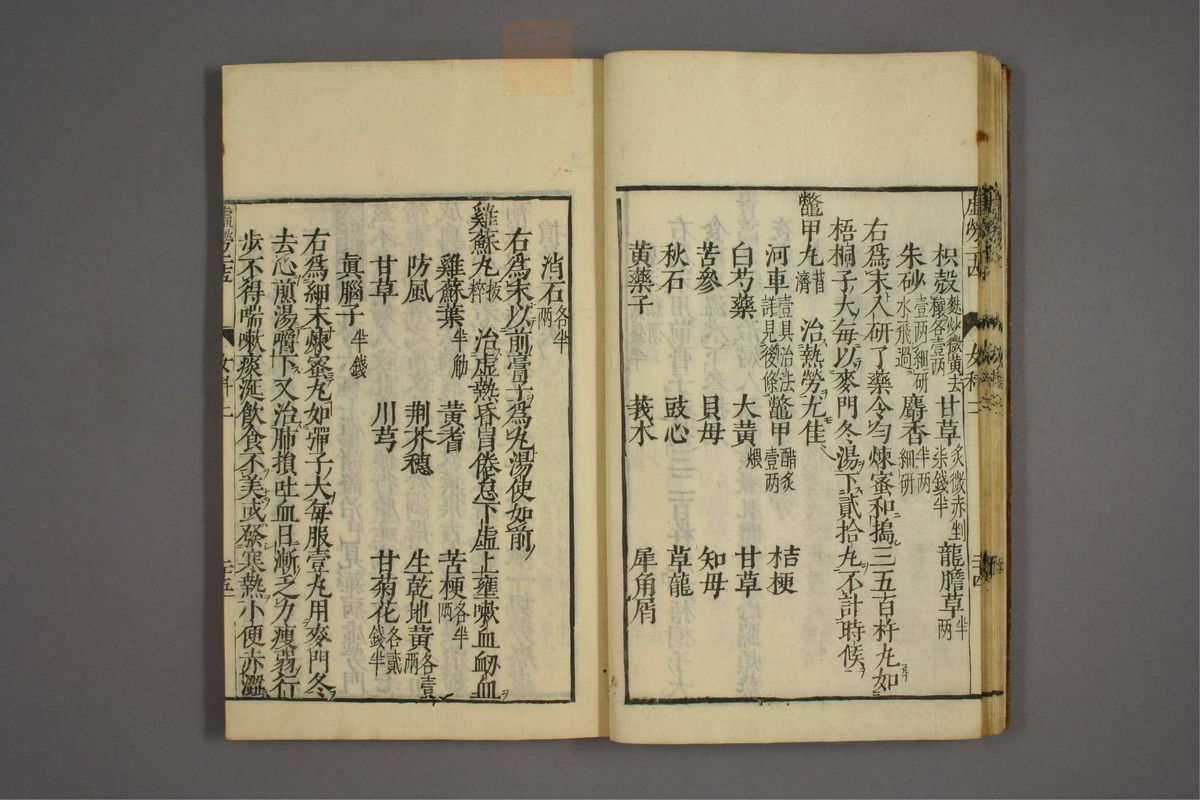 枳殼麩炒微黄去穰各壹两 甘草炙微赤剉柒錢半 龍膽草半两
朱砂壹两細研水飛過 麝香半两細研
右爲末入研了藥令勻煉蜜和搗三五百杵丸如
梧桐子大每以麥門冬湯下貳拾丸不計時候
鼈甲丸 治熱勞尤佳
河車壹具治法詳見後條 鼈甲醋炙壹两 桔梗
白芍藥 大黄煨 甘草
苦參 貝母 知母
秋石 豉心 草龍
黄藥子 莪朮 犀角屑
消石各半两
右爲末以前膏子爲丸湯使如前
雞蘇丸 治虚熱昏冒倦怠下虚上壅嗽血衂血
雞蘇葉半觔 黄耆 苦梗各半两
防風 荆芥穗 生乾地黄各壹两
甘草 川芎 甘菊花各貳錢半
眞腦子半錢
右爲細末煉蜜丸如彈子大每服壹丸用麥門冬
去心煎湯嚼下又治肺損吐血日漸乏力瘦弱行
步不得喘嗽痰涎飲食不美或發寒熱小便赤澀